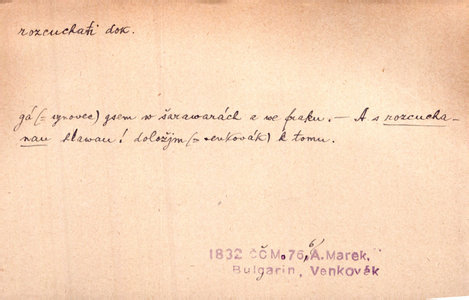 rozcuchati dok.
gá (= synovec) gsem w šarawarách a we fraku. — A s rozcucha-
nau hlawau! doložjm (= venkovák) k tomu.
1832 ČČM. 76, A. Marek,
Bulgarin, Venkovák